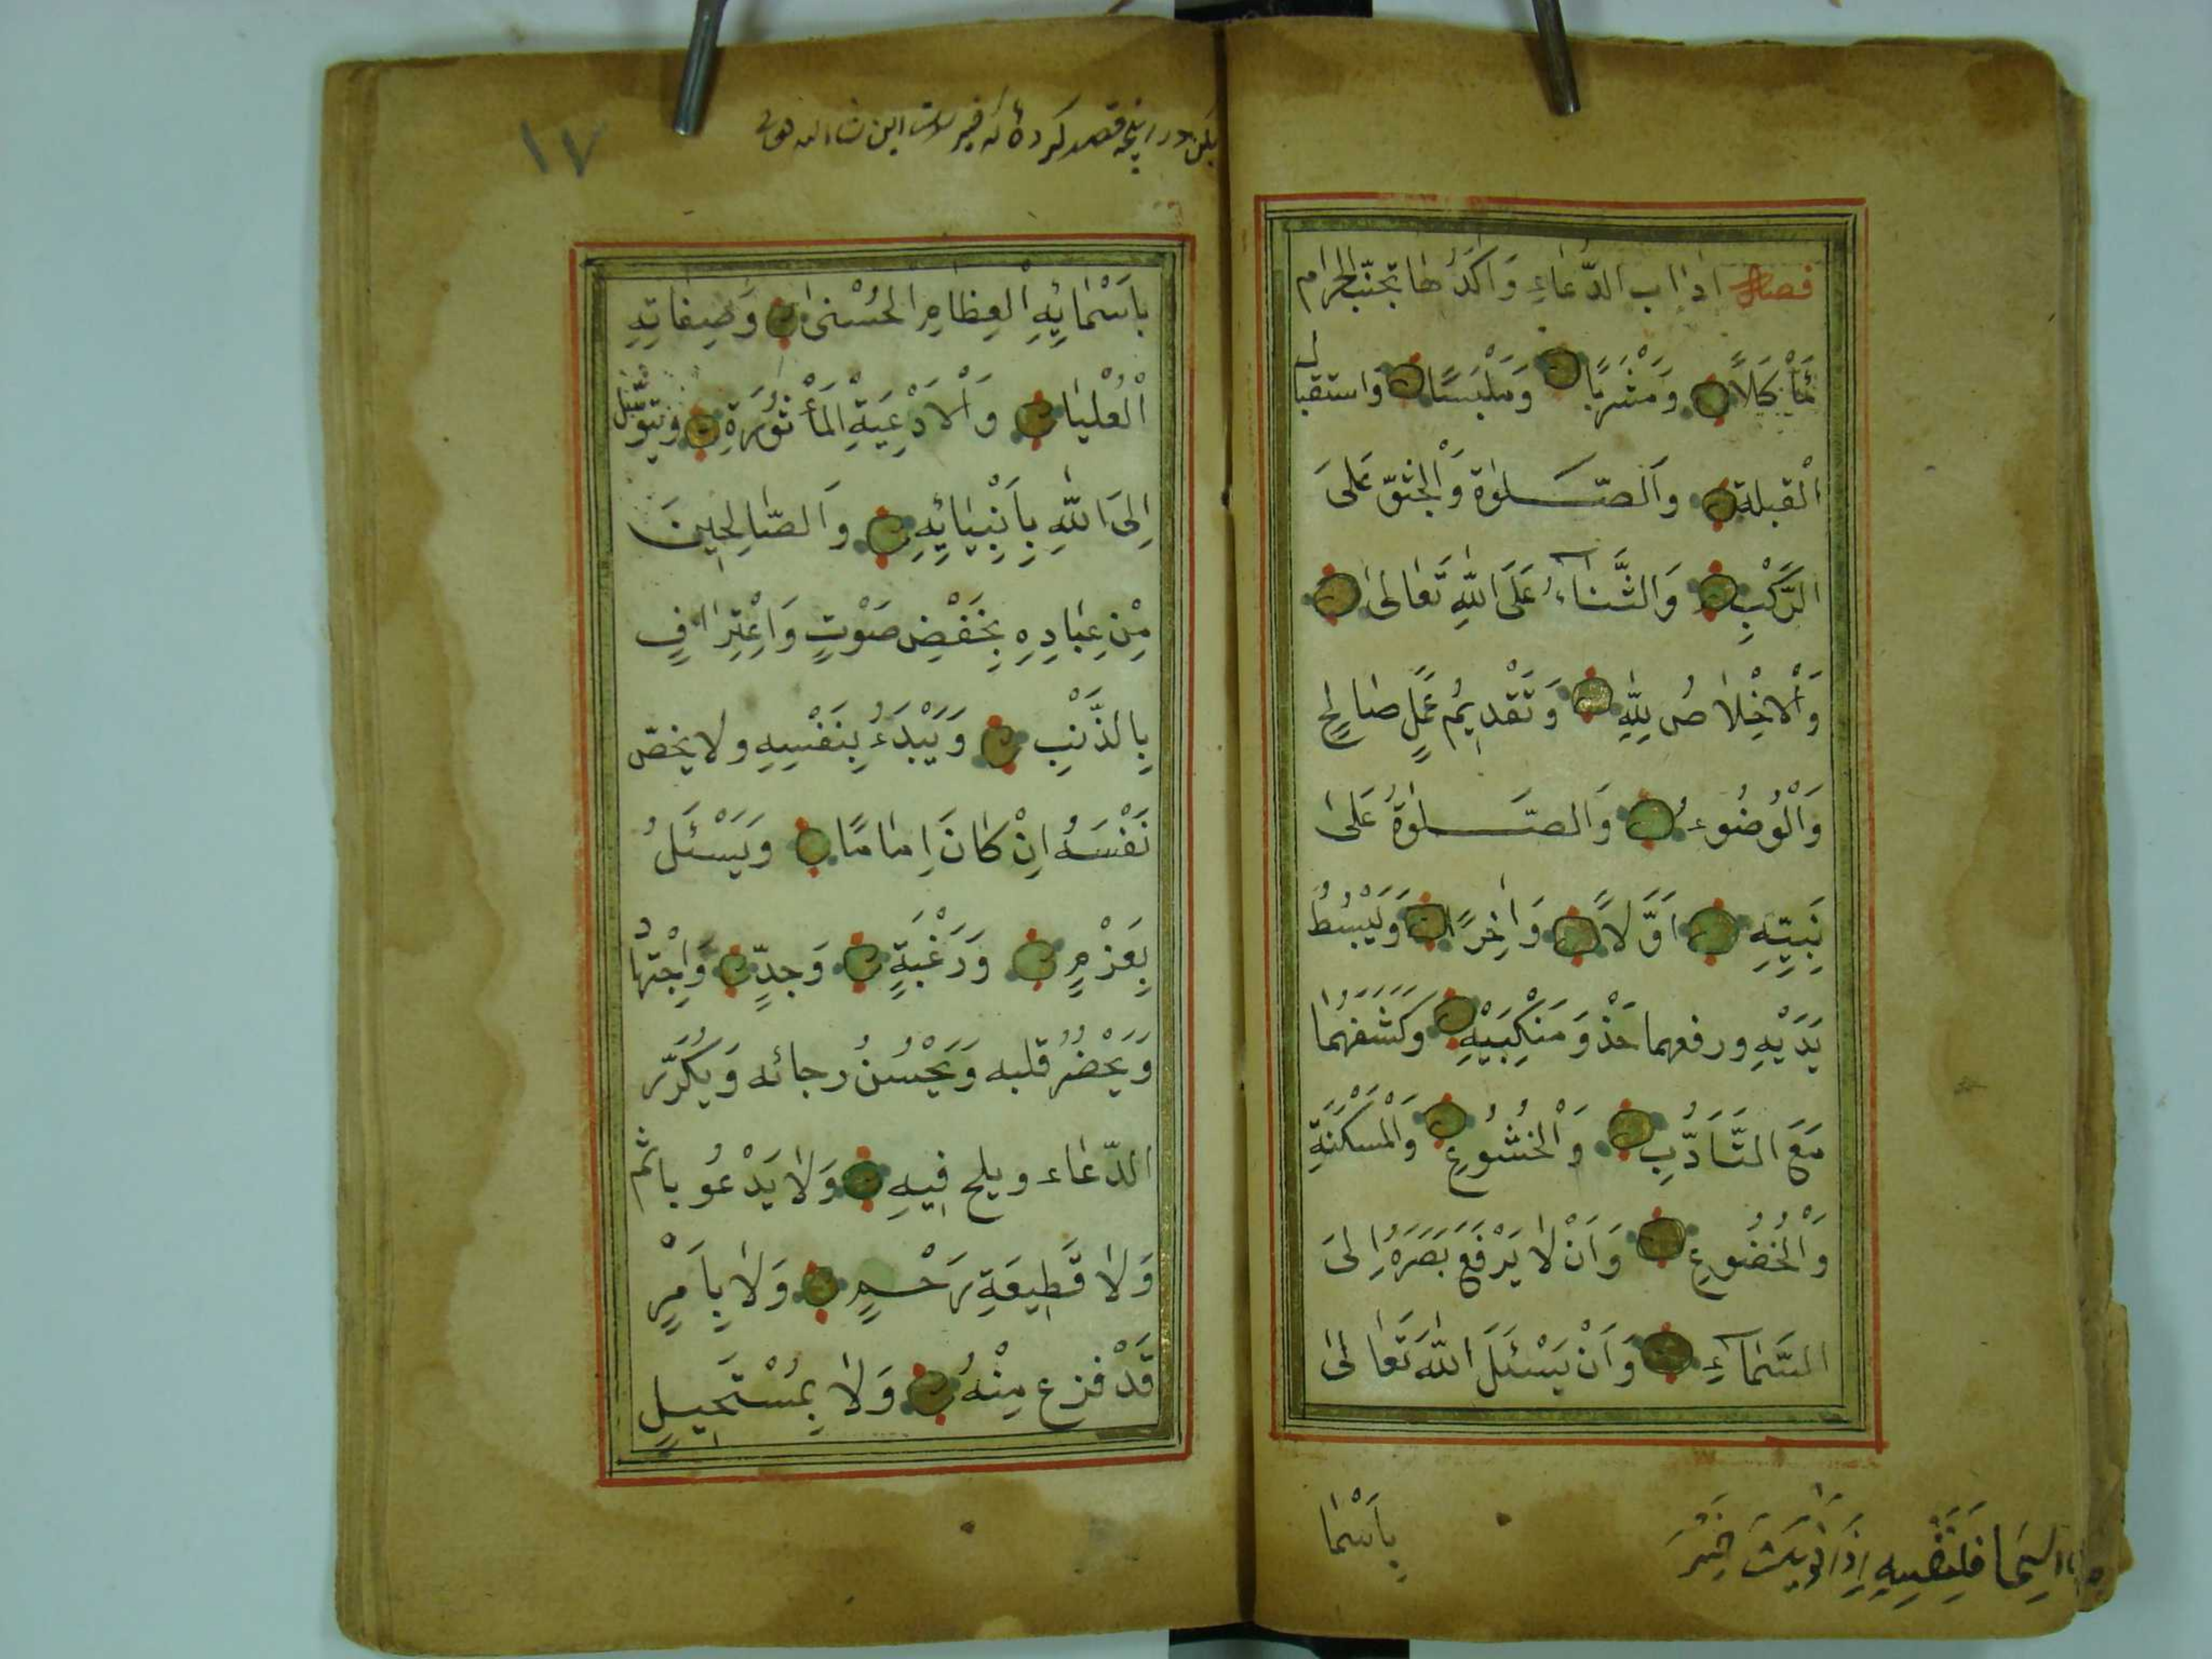 فصل اداب الدُّعَاءِ وَاٰكَدُهَا تجنّب الحرام
مَأْكَلاً وَمَشْرَبًا وَمَلْبَسًا واستقبال
الْقبلة وَالصَّلٰوة وَالْجثوّ عَلَى
الرَّكْبِ وَالثَّنَاۤءُ عَلَى اللّٰهِ تَعَالٰى
وَالْاِخْلَاصُ لِلّٰهِ وَتَقْدِيمُ عَمَلٍ صَالِحٍ
وَالْوُضُوءُ وَالصَّلٰوةُ عَلٰى
نَبِيّهِ اَوَّلاً وَاٰخِرًا وَلْيَبْسُطْ
يَدَيْهِ ورفعهما حَذْوَ مَنْكِبَيْهِ وَكَشَفَهُمَا
مَعَ التَّأَدُّبِ وَالْخُشُوعِ وَالْمَسْكَنَةِ
وَالْخُضُوعِ وَاَنْ لَا يَرْفَعَ بَصَرَهُ اِلَى
السَّمَاۤءِ وَاَنْ يَسْئَلَ اللّٰهَ تَعَالٰى
بِاَسْمَا
خَيْر
١٧
قصد كردۀ كه خير
بِاَسْمَائِهِ الْعِظَامِ الْحُسْنٰى وَصِفَاتِهِ
الْعُلْيَا وَالْاَدْعِيَةِ الْمَأْثُورَةِ وَيَتَوَسَّل
اِلَى اللّٰهِ بِاَنْبِيَائِهِ وَالصَّالِحِينَ
مِنْ عِبَادِهِ بِخَفْضِ صَوْتٍ وَاعْتِرَافٍ
بِالذَّنْبِ وَيَبْدَءُ بِنَفْسِهِ ولا يخصّ
نَفْسَهُ اِنْ كَانَ اِمَامًا وَيَسْئَلُ
بِعَزْمٍ وَرَغْبَةٍ وَجِدٍّ وَاِجْتِهَاد
وَيَحْضُرُ قلبه وَيَحْسُنُ رجائه وَيُكَرِّر
الدّعَاء ويلح فِيهِ وَلَا يَدْعُو باثم
وَلَا قَطِيعَةِ رَحْمٍ وَلَا بِاَمْرٍ
قَدْ فرغ مِنْهُ وَلَا بِمُسْتَحِيلٍ